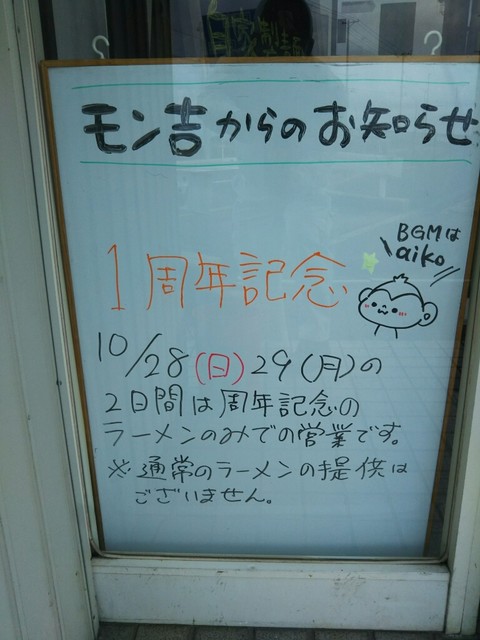 自家製麺
モン吉からのお知らせ
BGMは
aiko
1周年記念
10/28(日)29(月)の
2日間は周年記念の
ラーメンのみでの営業です。
※通常のラーメンの提供は
ございません。